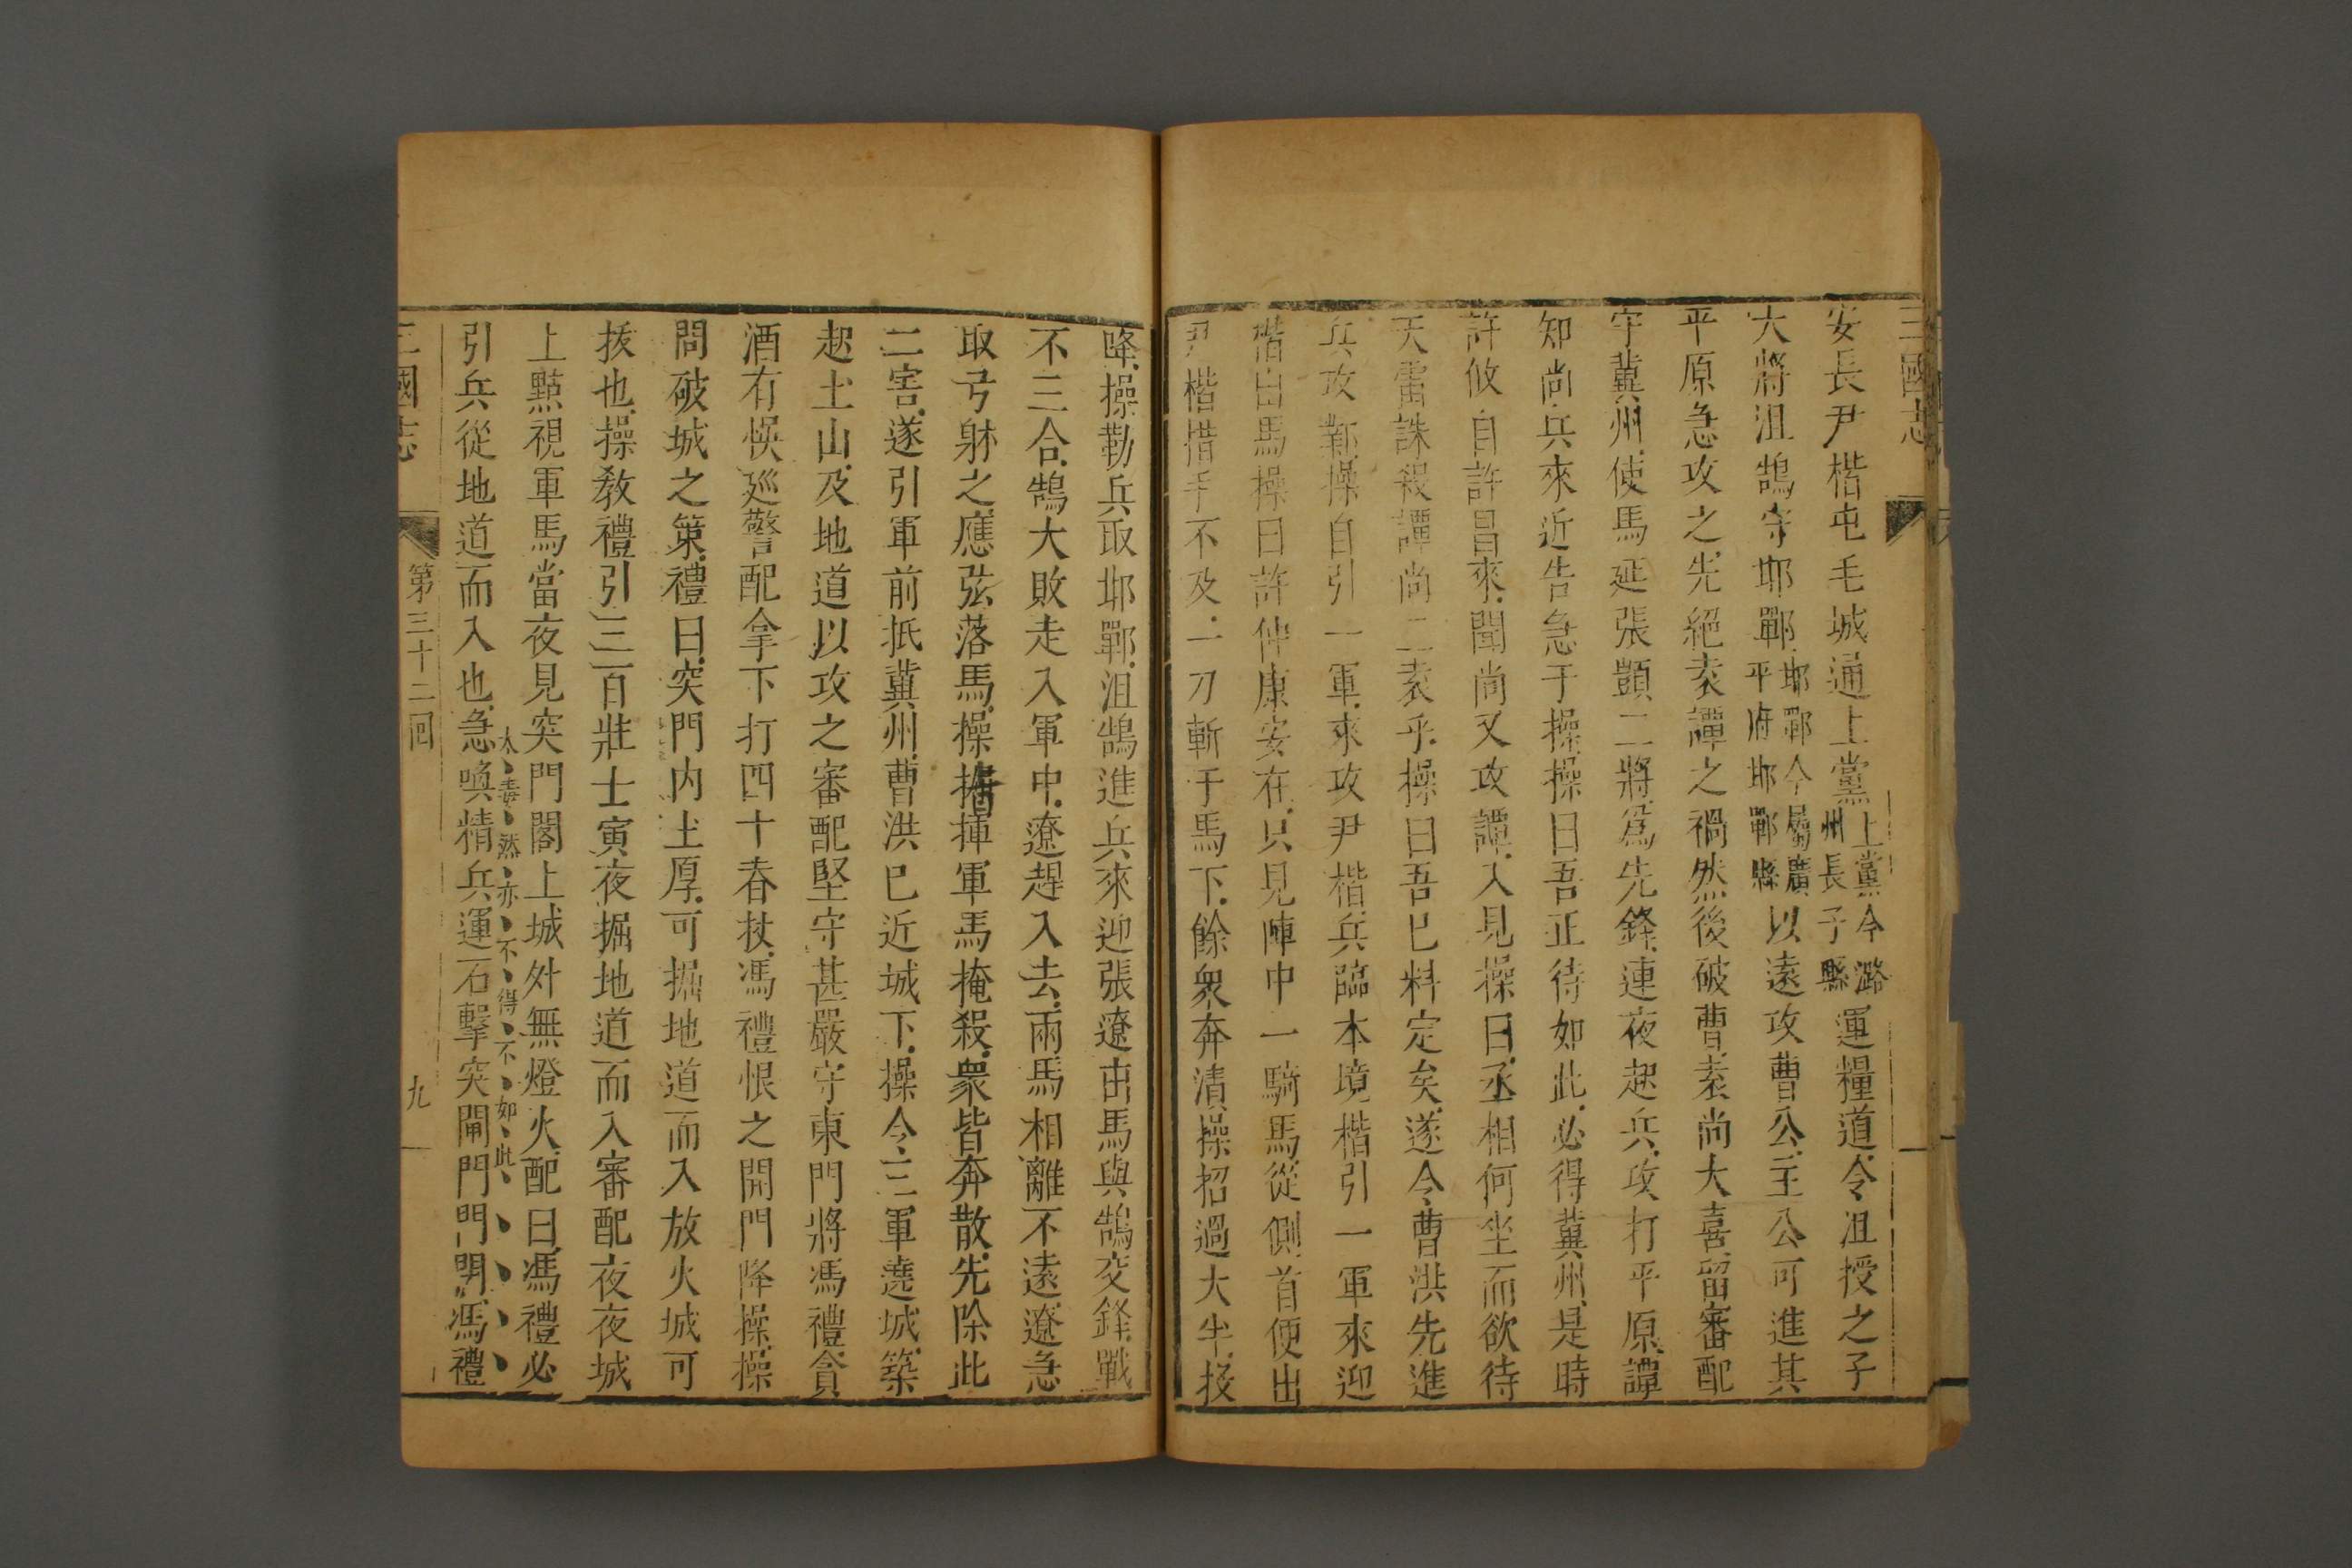 三國志
安長尹楷屯毛城通上黨上黨今潞州長子縣運糧道令沮授之子
大將沮鵠守邯鄲邯鄲今屬廣平府邯鄲縣以遠攻曹公主公可進其
平原急攻之先絕袁譚之禍然後破曹袁尚大喜留審配
守冀州使馬延張顗二將爲先鋒連夜起兵攻打平原譚
知尚兵來近告急于操操曰吾正待如此必得冀州是時
許攸自許昌來聞尚又攻譚入見操曰丞相何坐而欲待
天雷誅殺譚尚二袁乎操曰吾已料定矣遂令曹洪先進
兵攻鄴操自引一軍來攻尹楷兵臨本境楷引一軍來迎
楷出馬操曰許仲康安在只見陣中一騎馬從側首便出
尹楷措手不及一刀斬于馬下餘衆奔潰操招過大半投
降操勒兵取邯鄲沮鵠進兵來迎張遼出馬與鵠交鋒戰
不三合鵠大敗走入軍中遼趕入去兩馬相離不遠遼急
取弓射之應弦落馬操指揮軍馬掩殺衆皆奔散先除此
二害遂引軍前抵冀州曹洪已近城下操令三軍遶城築
起土山及地道以攻之審配堅守甚嚴守東門將馮禮貪
酒有悞廵警配拿下打四十脊杖馮禮恨之開門降操操
問破城之策禮曰突門内土厚可掘地道而入放火城可
拔也操敎禮引三百壯士寅夜掘地道而入審配夜夜城
上㸃視軍馬當夜見突門閣上城外無燈火配曰馮禮必
太毒然亦不得不如此
引兵從地道而入也急喚精兵運石擊突閘門門閉馮禮
三國志
第三十二回
九